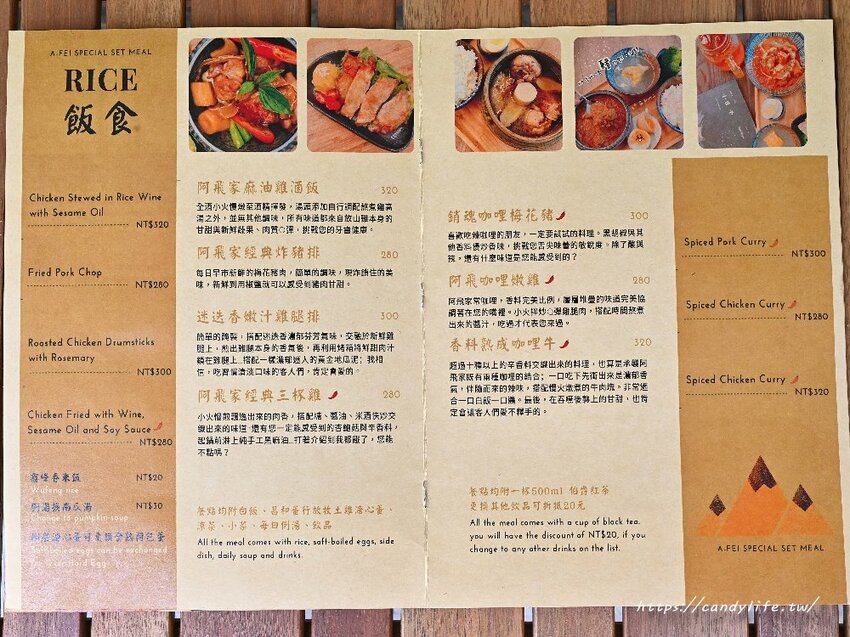 A:FEI SPECIAL SET MEAL
RICE
飯食
Chicken Stewed in Rice Wine
with Sesame Oil
NT$320
Fried Pork Chop
NT$280
Roasted Chicken Drumsticks
with Rosemary
NT$300
Chicken Fried with Wine,
Sesame Oil and Soy Sauce
NT$280
霧峰香米飯 NT$20
Wufeng rice
例湯換南瓜湯 NT$30
Change to pumpkin soup
Soft-boiled eggs can be exchanged
阿飛家麻油雞酒飯 320
全酒小火慢燉至酒精揮發,湯頭添加自行調配熬煮雞高
湯之外,並無其他調味,所有味道都來自放山雞本身的
甘甜與新鮮蔬果、肉質Q彈,挑戰您的牙齒健康。
阿飛家經典炸豬排 280
每日早市新鮮的梅花豬肉,簡單的調味,現炸鎖住的美
味,新鮮到用椒鹽就可以感受到豬肉甘甜。
迷迭香嫩汁雞腿排 300
簡單的醃製,搭配迷迭香濃郁芬芳氣味,交融於新鮮雞
腿上,煎出雞腿本身的香氣後,再利用烤箱將鮮甜肉汁
鎖在雞腿上...搭配一樣濃郁迷人的黃金地瓜泥;我相
信,吃習慣清淡口味的客人們,肯定會愛的。
阿飛家經典三杯雞 280
小火慢煎飄逸出來的肉香,搭配糖、醬油、米酒快炒交
織出來的美味 還有您一定能感受到的杏鮑菇與辛香料,
起鍋前淋上純手工黑麻油...打著介紹到我都餓了,您能
不點嗎?
餐點均附白飯、昌和蛋行放牧土雞溏心蛋、
涼菜、小菜、每日例湯、飲品
All the meal comes with rice, saft-boiled eggs, side
dish, daily soup and drinks.
銷魂咖哩梅花豬 300
喜歡吃辣咖哩的朋友,一定要試試的料理。黑胡椒與其
他香料爆炒香味,挑戰您舌尖味蕾的敏銳度。除了酸與
辣,還有什麼味道是您能感受到的?
阿飛咖哩嫩雞 280
阿飛家常咖哩,香料完美比例,層層堆疊的味道完美協
調著在您的嘴裡。小火拌炒Q彈雞腿肉,搭配時間熬煮
出來的醬汁,吃過才代表您來過。
香料熟成咖哩牛 320
超過十種以上的辛香料交織出來的料理,也算是承襲阿
飛家既有兩種咖哩的結合;一口吃下先衝出來是濃郁香
氣,伴隨而來的辣味,搭配慢火燉煮的牛肉塊。非常適
合一口白飯一口醬。最後,在吞嚥後襲上的甘甜、也肯
定會讓客人們愛不釋手的。
餐點均附一杯500ml 伯爵紅茶
更換其他飲品可折抵20元
All the meal comes with a cup of black tea.
you will have the discount of NT$20, if you
change to any other drinks on the list.
Spiced Pork Curry
NT$300
Spiced Chicken Curry
NT$280
Spiced Chicken Curry
NT$320
A:FEI SPECIAL SET MEAL
https://candylife.tw/